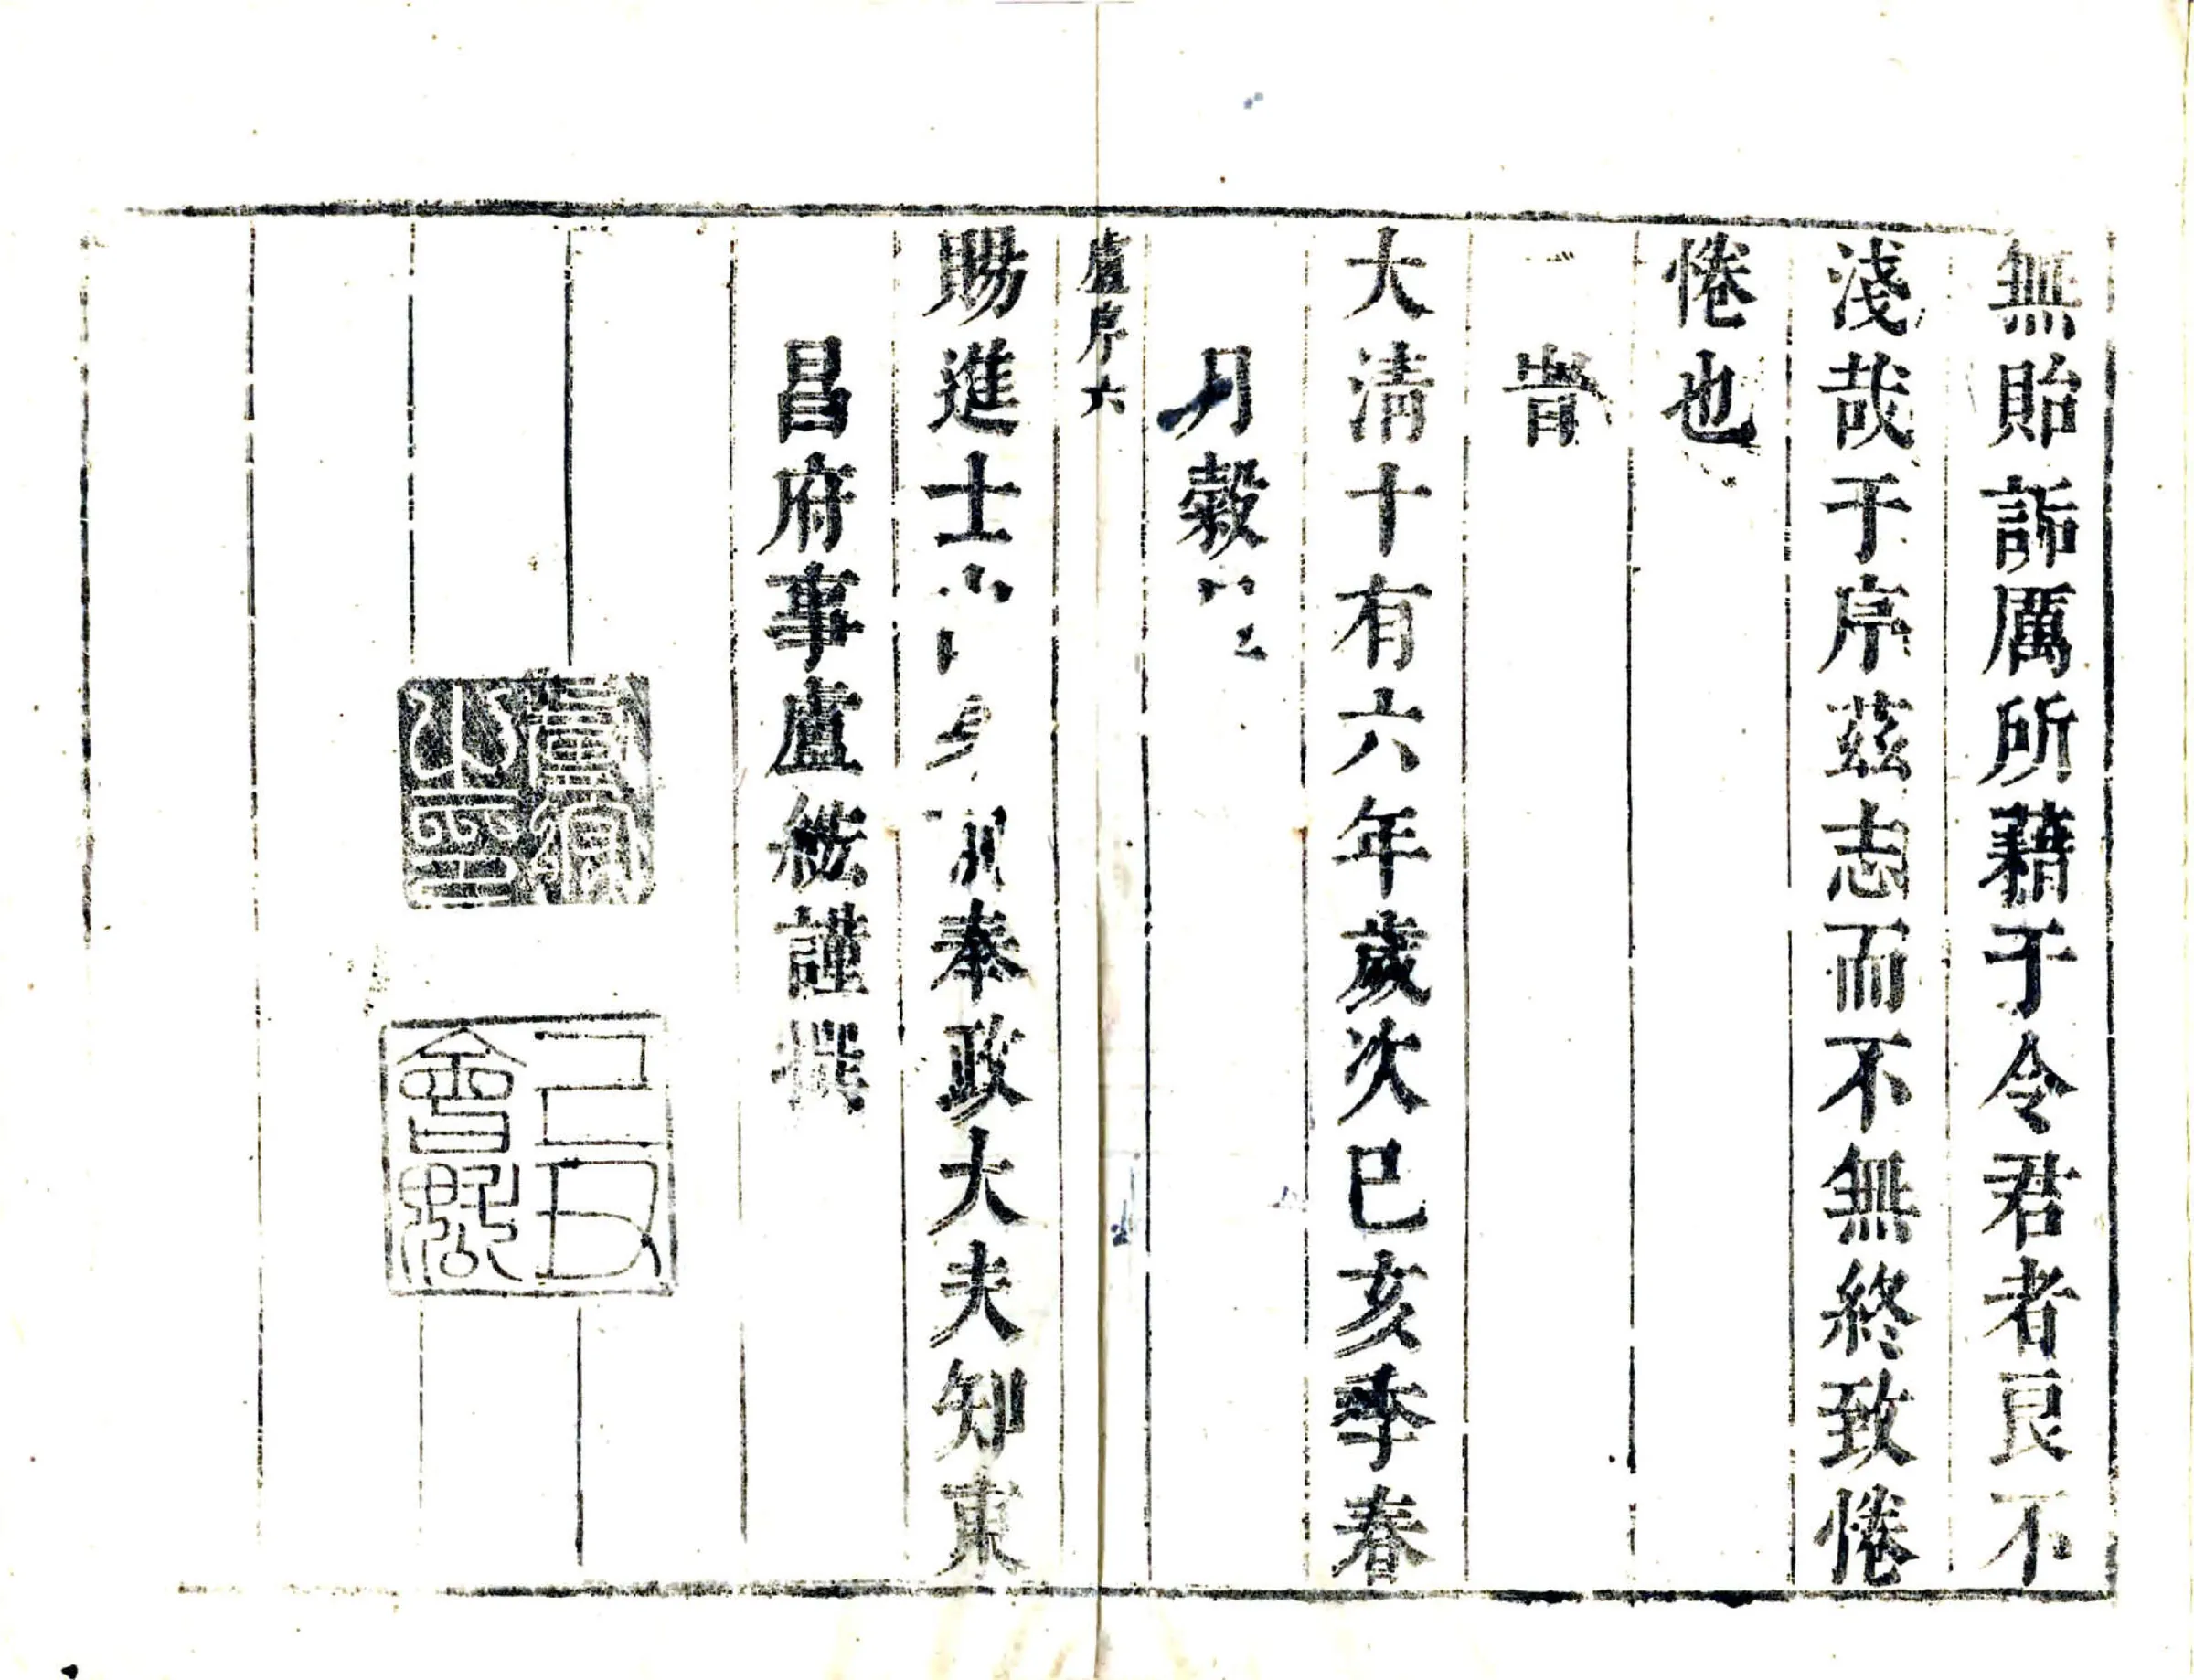 無貽訴厲所藉于令君者良不
淺哉于序茲志而不無終致惓
惓也
旹
大清十有六年歲次巳亥季春
月穀
盧序六
賜進士奉政大夫知東
昌府事盧紘謹撰
之印
己丑會魁